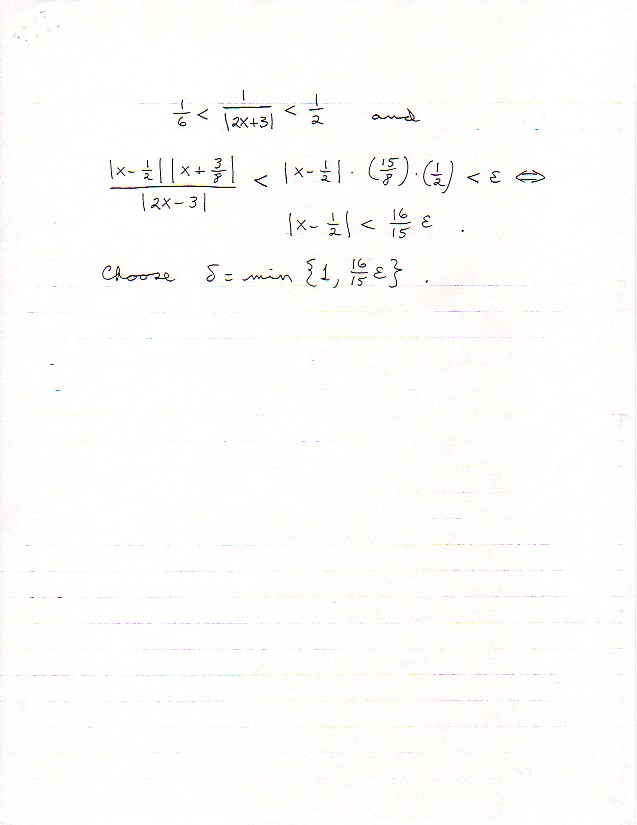 1/6 < 1/|2x+3| < 1/2 and
|x-1/2||x+3/8|/|2x-3| < |x-1/2|·(15/8)·(1/2) < ε ⇔
|x-1/2| < 16/15 ε .
Choose δ = min {1, 16/15 ε} .